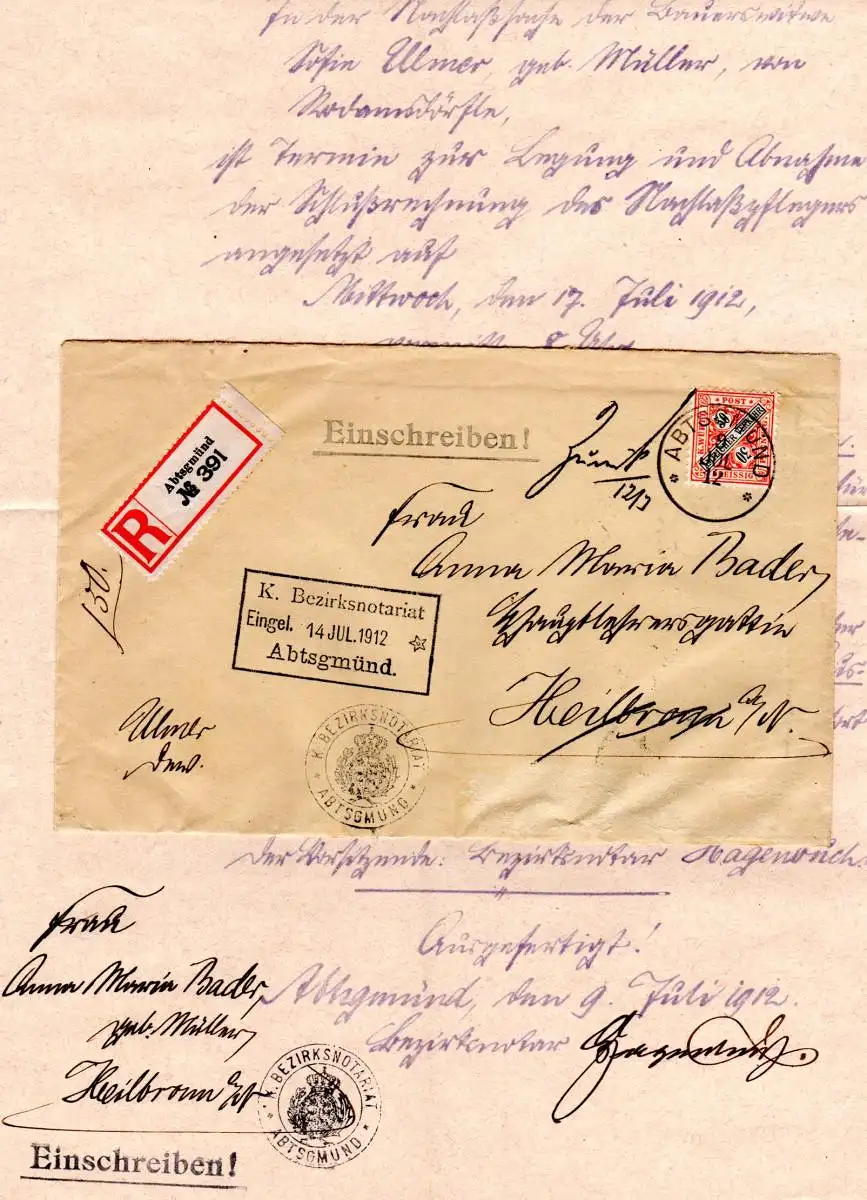 In der Nachlaßsache der Bauerswitwe
Sofie Ulmer, geb. Müller, von
Rodamsdörfle,
ist Termin zur Legung und Abnahme
der Schlußrechnung des Nachlaßpflegers
angesetzt auf
Mittwoch, den 17. Juli 1912,
vormitt. 8 Uhr
Einschreiben!
Abtsgmünd
№ 391
R
POST
30
30
ABTSGMÜND
12/7
Frau
Anna Maria Bader,
Hauptlehrersgattin
Heilbronn a/N.
150.
K. Bezirksnotariat
Eingel. 14 JUL. 1912
Abtsgmünd.
Ulmer
K. BEZIRKSNOTARIAT
ABTSGMÜND
Der Vorsitzende: Bezirksnotar Hagenbuch.
Ausgefertigt!
Abtsgmünd, den 9. Juli 1912.
Bezirksnotar
Frau
Anna Maria Bader,
geb. Müller,
Heilbronn a/N
K. BEZIRKSNOTARIAT
ABTSGMÜND
Einschreiben!